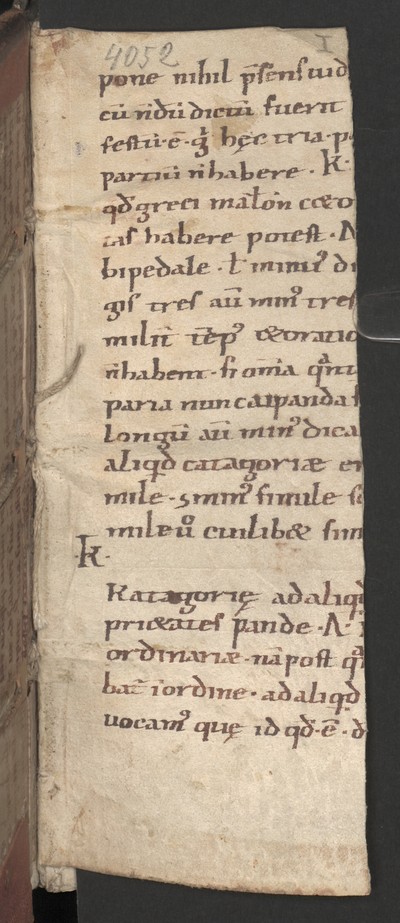 4052 I
pone nihil p̄sens uid
cū n̄dū dictū fuerit
festū·ē·g̊ hęc tria·p
partiū n̄ habere · k·
qđ greci mallon &
tas habere potest · A
bipedale · ł minus di
gis tres aū min᷒ tres
milit̄ tēp᷒ & oratio
n̄ habent · si om̄ia quant
paria nuncupanda s
longū aū min᷒ dica
aliqđ catagoriæ
mile · & min᷒ simile
mile ů cuilib& sim
·k·
Katagorię ad aliqđ
pri&ates pande · A ·
ordinariæ · nā post
bat̄ i ordine · ad aliqđ
uocam᷒ quę id qđ · ē · d